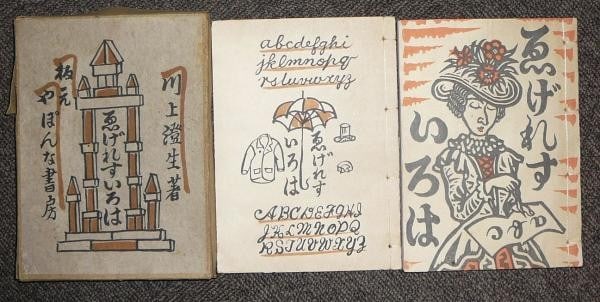 川上澄生著
ゑげれすいろは
板元
やぽんな書房
abcdefghi
jklmnopq
rstuvwxyz
ゑげれす
いろは
ABCDEFGHI
JKLMNOPQ
RSTUVWXYZ
ゑげれす
いろは